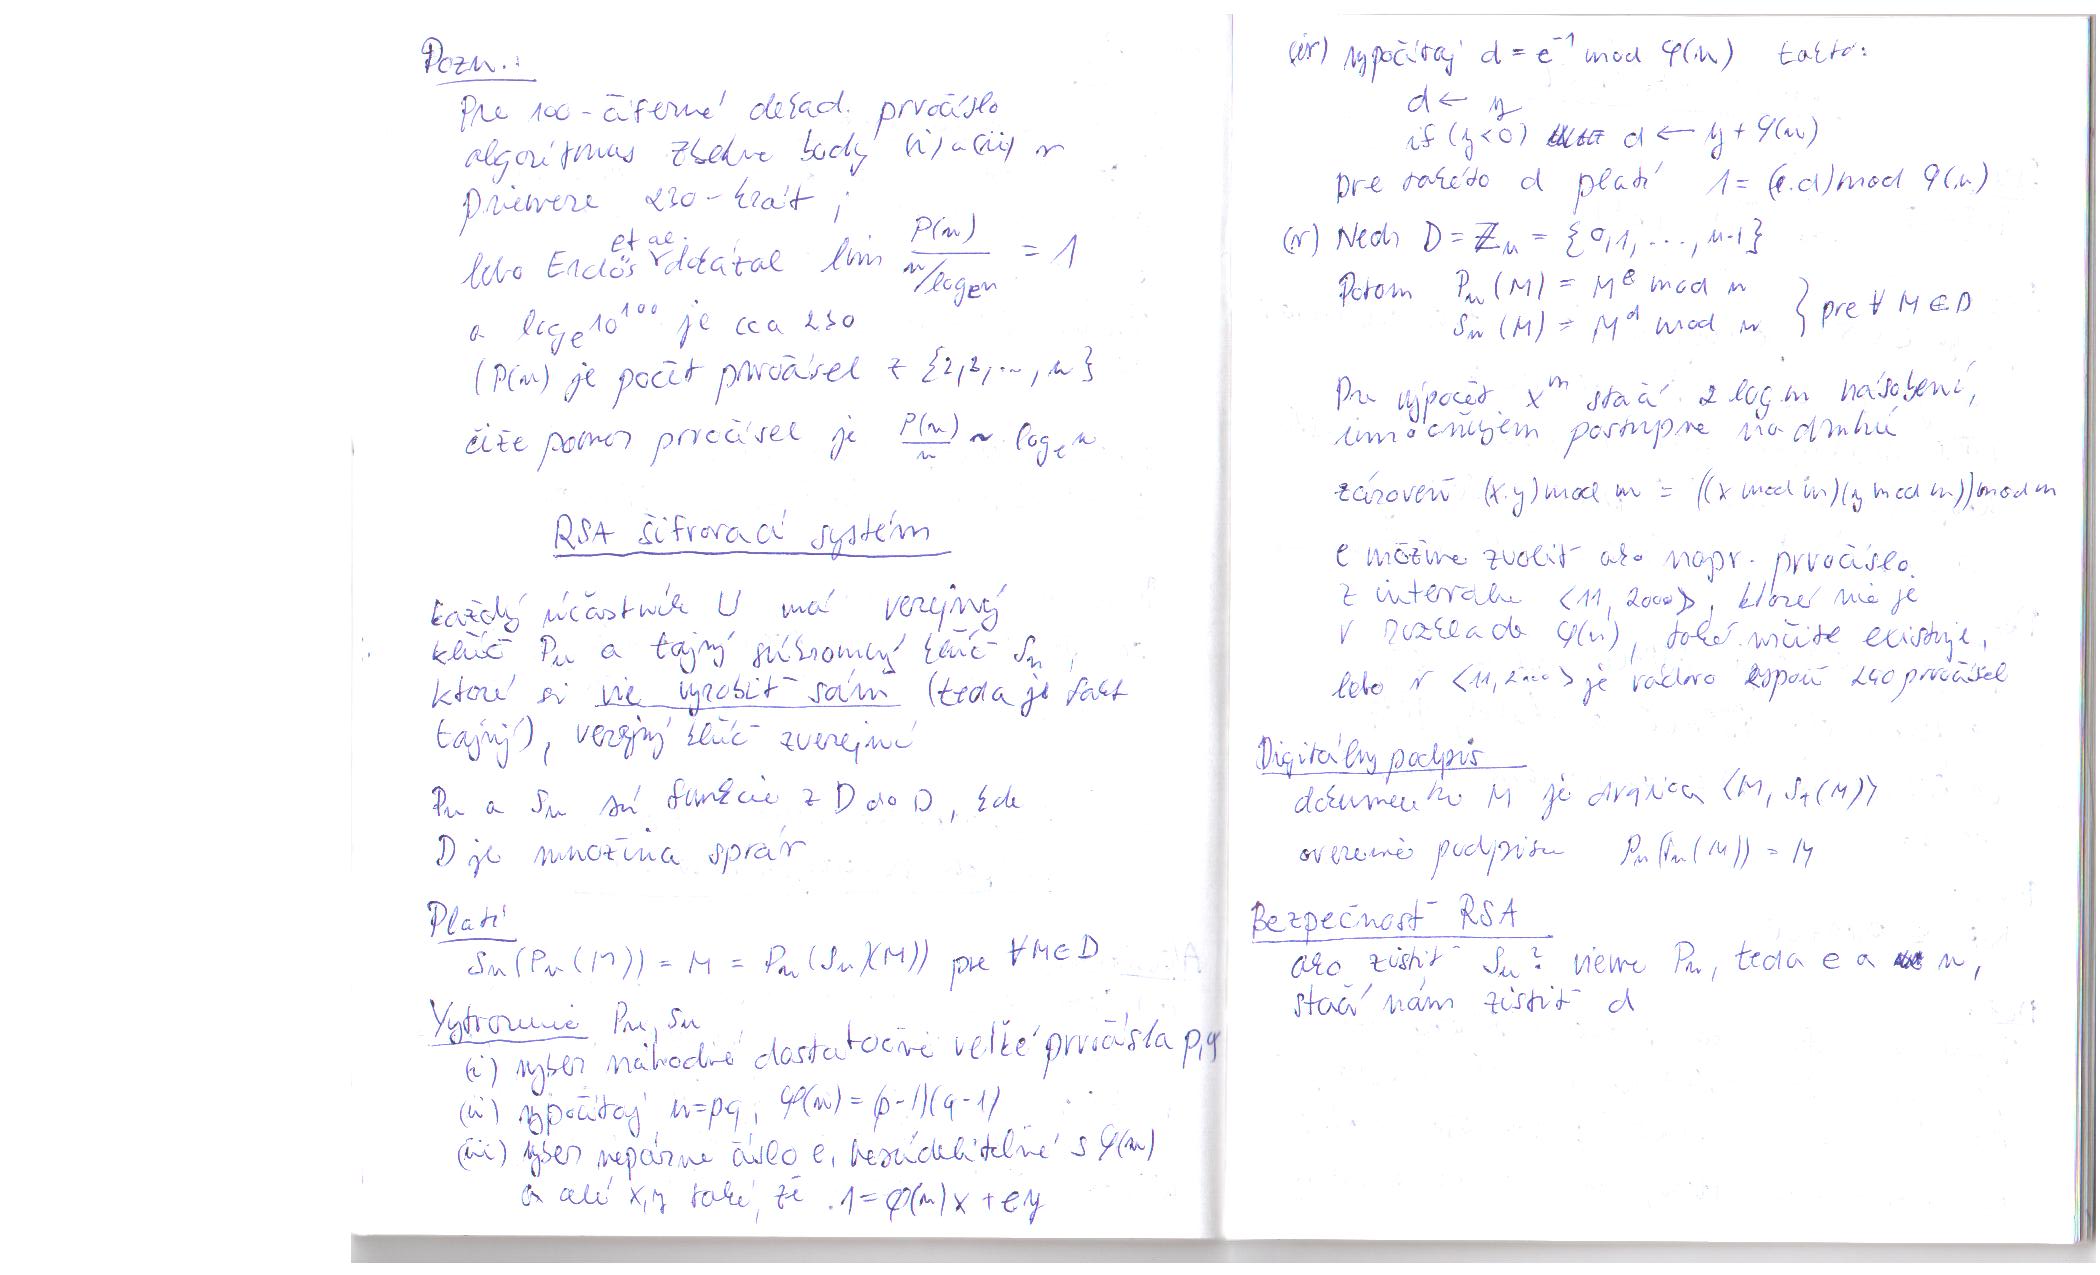 Pozn.:
Pre 100-ciferné dekad. prvočíslo
algoritmus zbehne body (i) a (ii) v
priemere 230-krát ;
lebo Erdös et al. dokázal lim P(n) / n/log_e n = 1
a log_e 10^100 je cca 230
(P(n) je počet prvočísel z {2,3,...,n}
čiže pomer prvočísel je P(n)/n ~ log_e n
RSA šifrovací systém
každý účastník U má verejný
kľúč Pu a tajný súkromný kľúč Su,
ktoré si vie vyrobiť sám (teda je fakt
tajný), verejný kľúč zverejní
Pu a Su sú funkcie z D do D, kde
D je množina správ
Platí
Su(Pu(M)) = M = Pu(Su)(M)) pre ∀M∈D
Vytvorenie Pu, Su
(i) vyber náhodné dostatočné veľké prvočísla p,q
(ii) vypočítaj n=pq, φ(n)=(p-1)(q-1)
(iii) vyber nepárne číslo e, nesúdeliteľné s φ(n)
a x,y také, že 1=φ(n)x+ey
(iv) vypočítaj d = e^-1 mod φ(n) takto:
d ← y
if (y<0) d ← y + φ(n)
pre takéto d platí 1 = (e.d) mod φ(n)
(v) Nech D = ℤn = {0,1,...,n-1}
Potom Pu(M) = M^e mod n
Su(M) = M^d mod n } pre ∀ M ∈ D
Pre výpočet x^m stačí 2 log m násobení,
umocňujem postupne na druhú
zároveň (x.y) mod m = ((x mod m)(y mod m)) mod m
e môžme zvoliť ako napr. prvočíslo
z intervalu <11, 2000>, ktoré nie je
v rozklade φ(n), také určite existuje,
lebo v <11, 2000> je rádovo aspoň 240 prvočísel
Digitálny podpis
dokumentu M je dvojica <M, Su(M)>
overenie podpisu Pu(Su(M)) = M
Bezpečnosť RSA
ako zistiť Su? vieme Pu, teda e a n,
stačí nám zistiť d